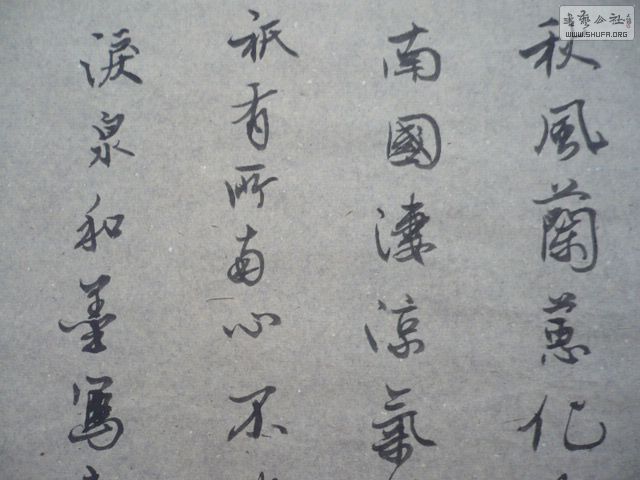 秋風蘭蕙化
南國淒涼氣
祇有所南心不
淚泉和墨寫
書藝公社
WWW.SHUFA.ORG